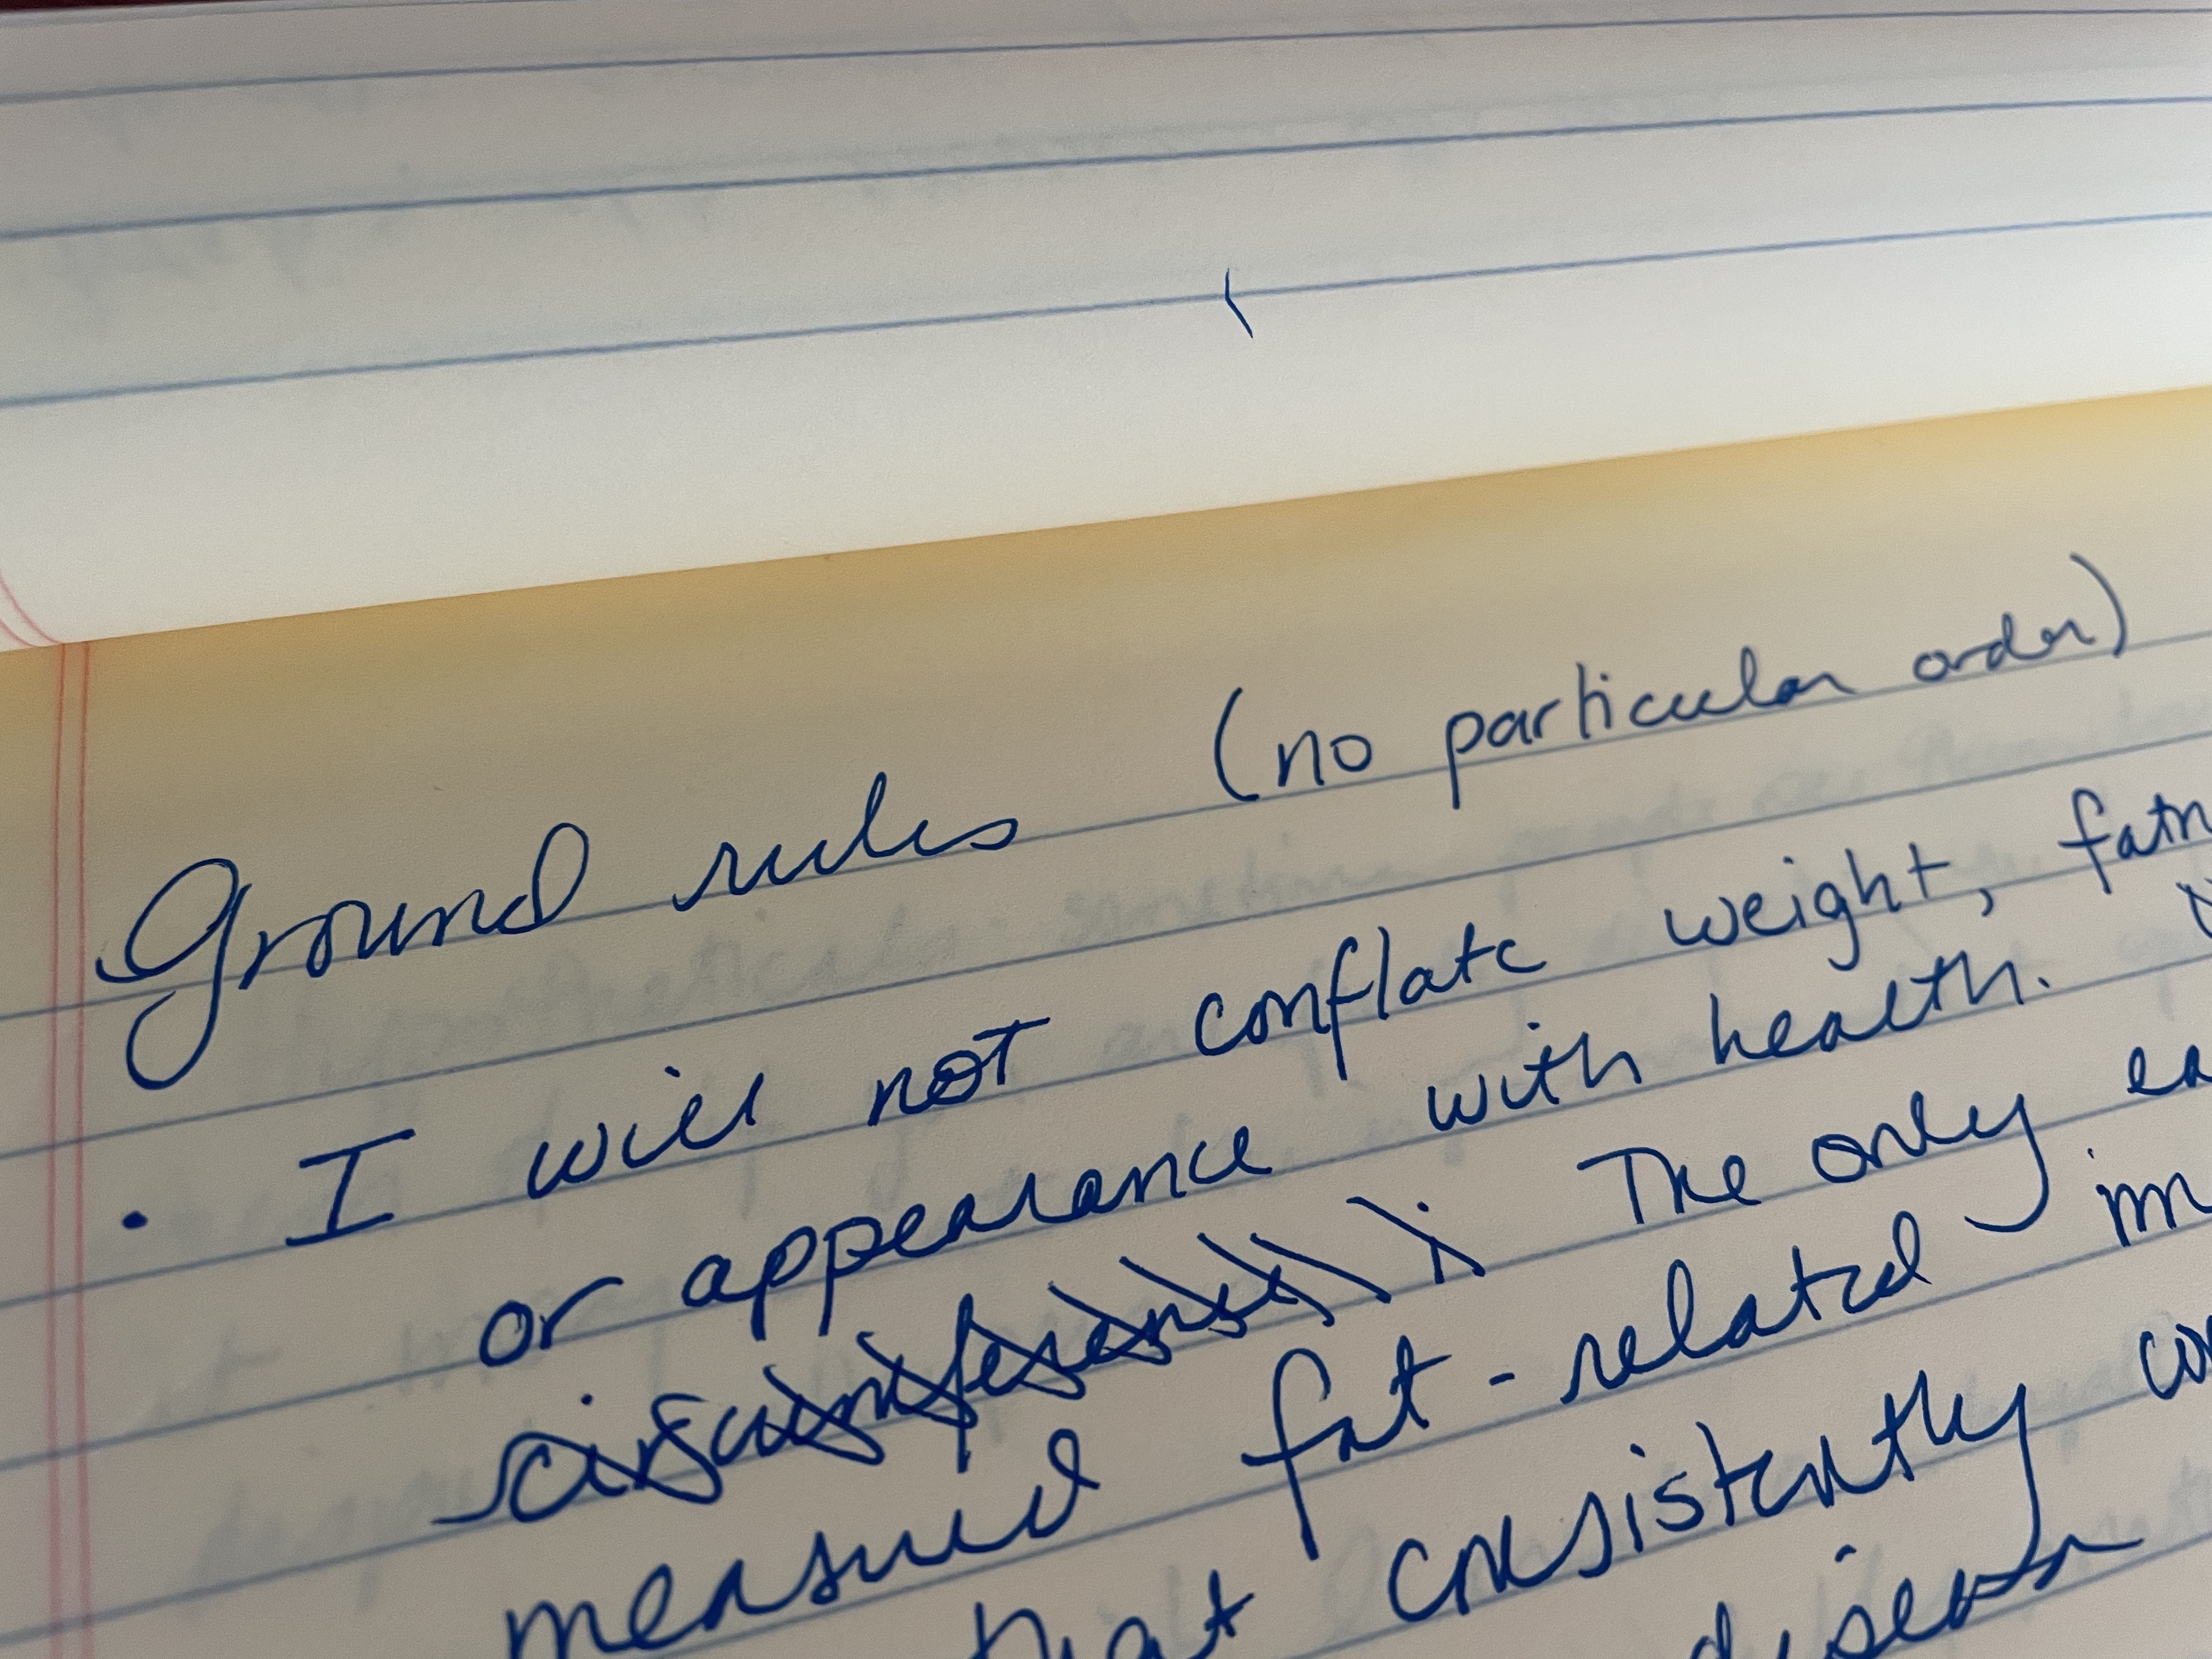 Ground rules (no particular order)
• I will not conflate weight, fatn
or appearance with health.
The only ea
measured fat-related im
that consistently co
disease